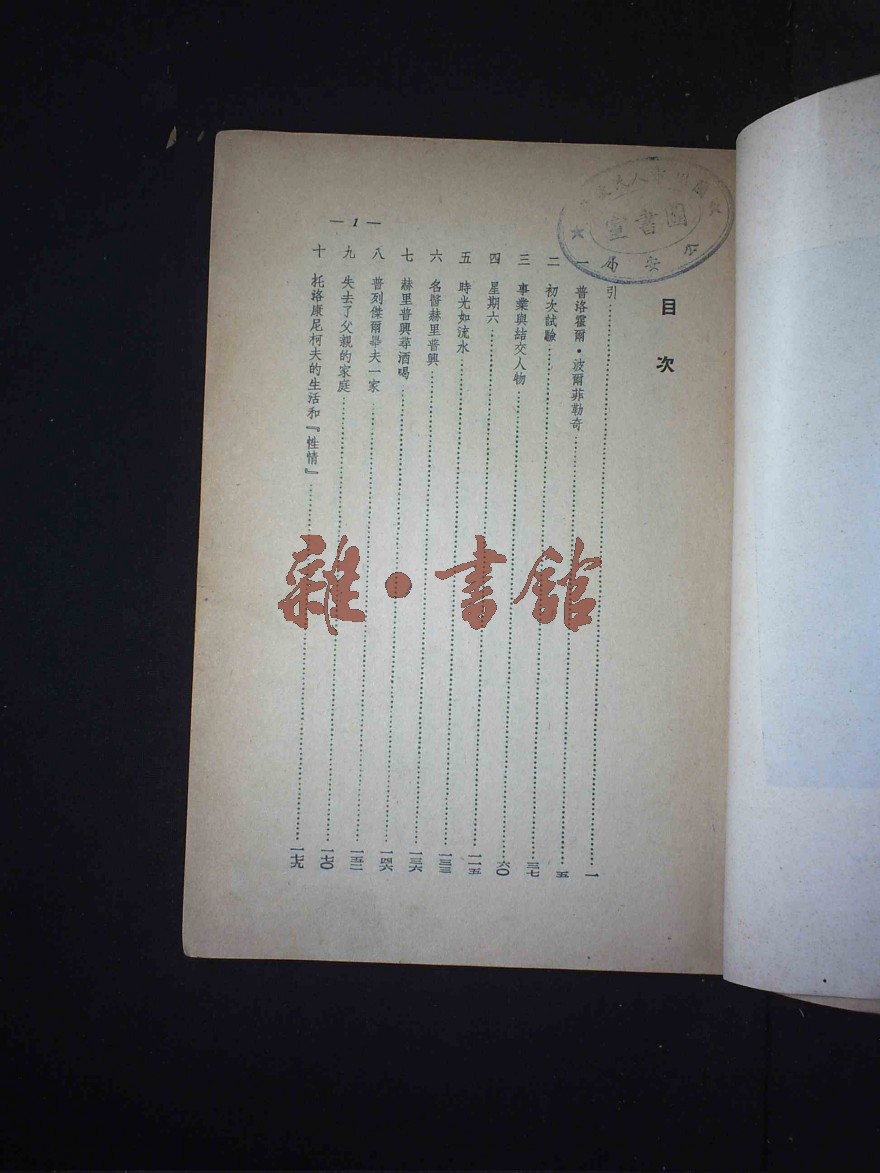 目次
引 一
一 普洛霍爾·波爾菲勒奇 五
二 初次試驗 三七
三 事業與結交人物 六〇
四 星期六 一一五
五 時光如流水 一三三
六 名醫赫里普興 一三六
七 赫里普興尋酒喝 一四六
八 普列傑爾畢夫一家 一五二
九 失去了父親的家庭 一七〇
十 托洛康尼柯夫的生活和『性情』 一七九
— 1 —
圖書室
公安局
雜·書館